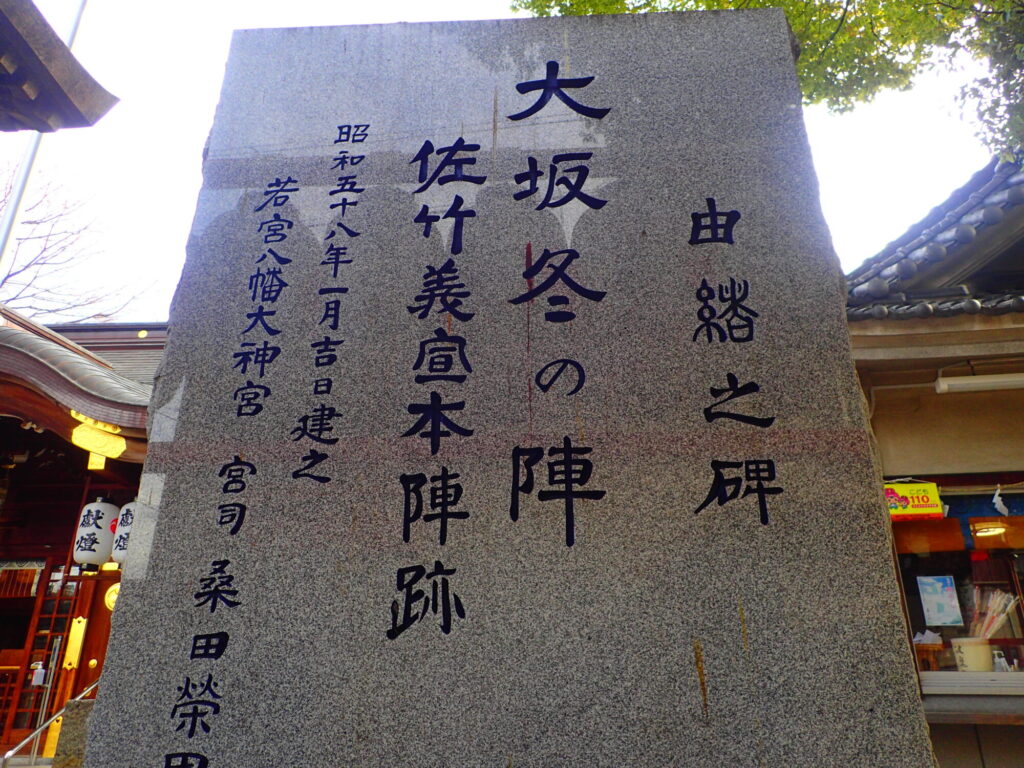 由緒之碑
大坂冬の陣
佐竹義宣本陣跡
昭和五十八年一月吉日建之
若宮八幡大神宮 宮司 桑田榮
献燈
こども
110